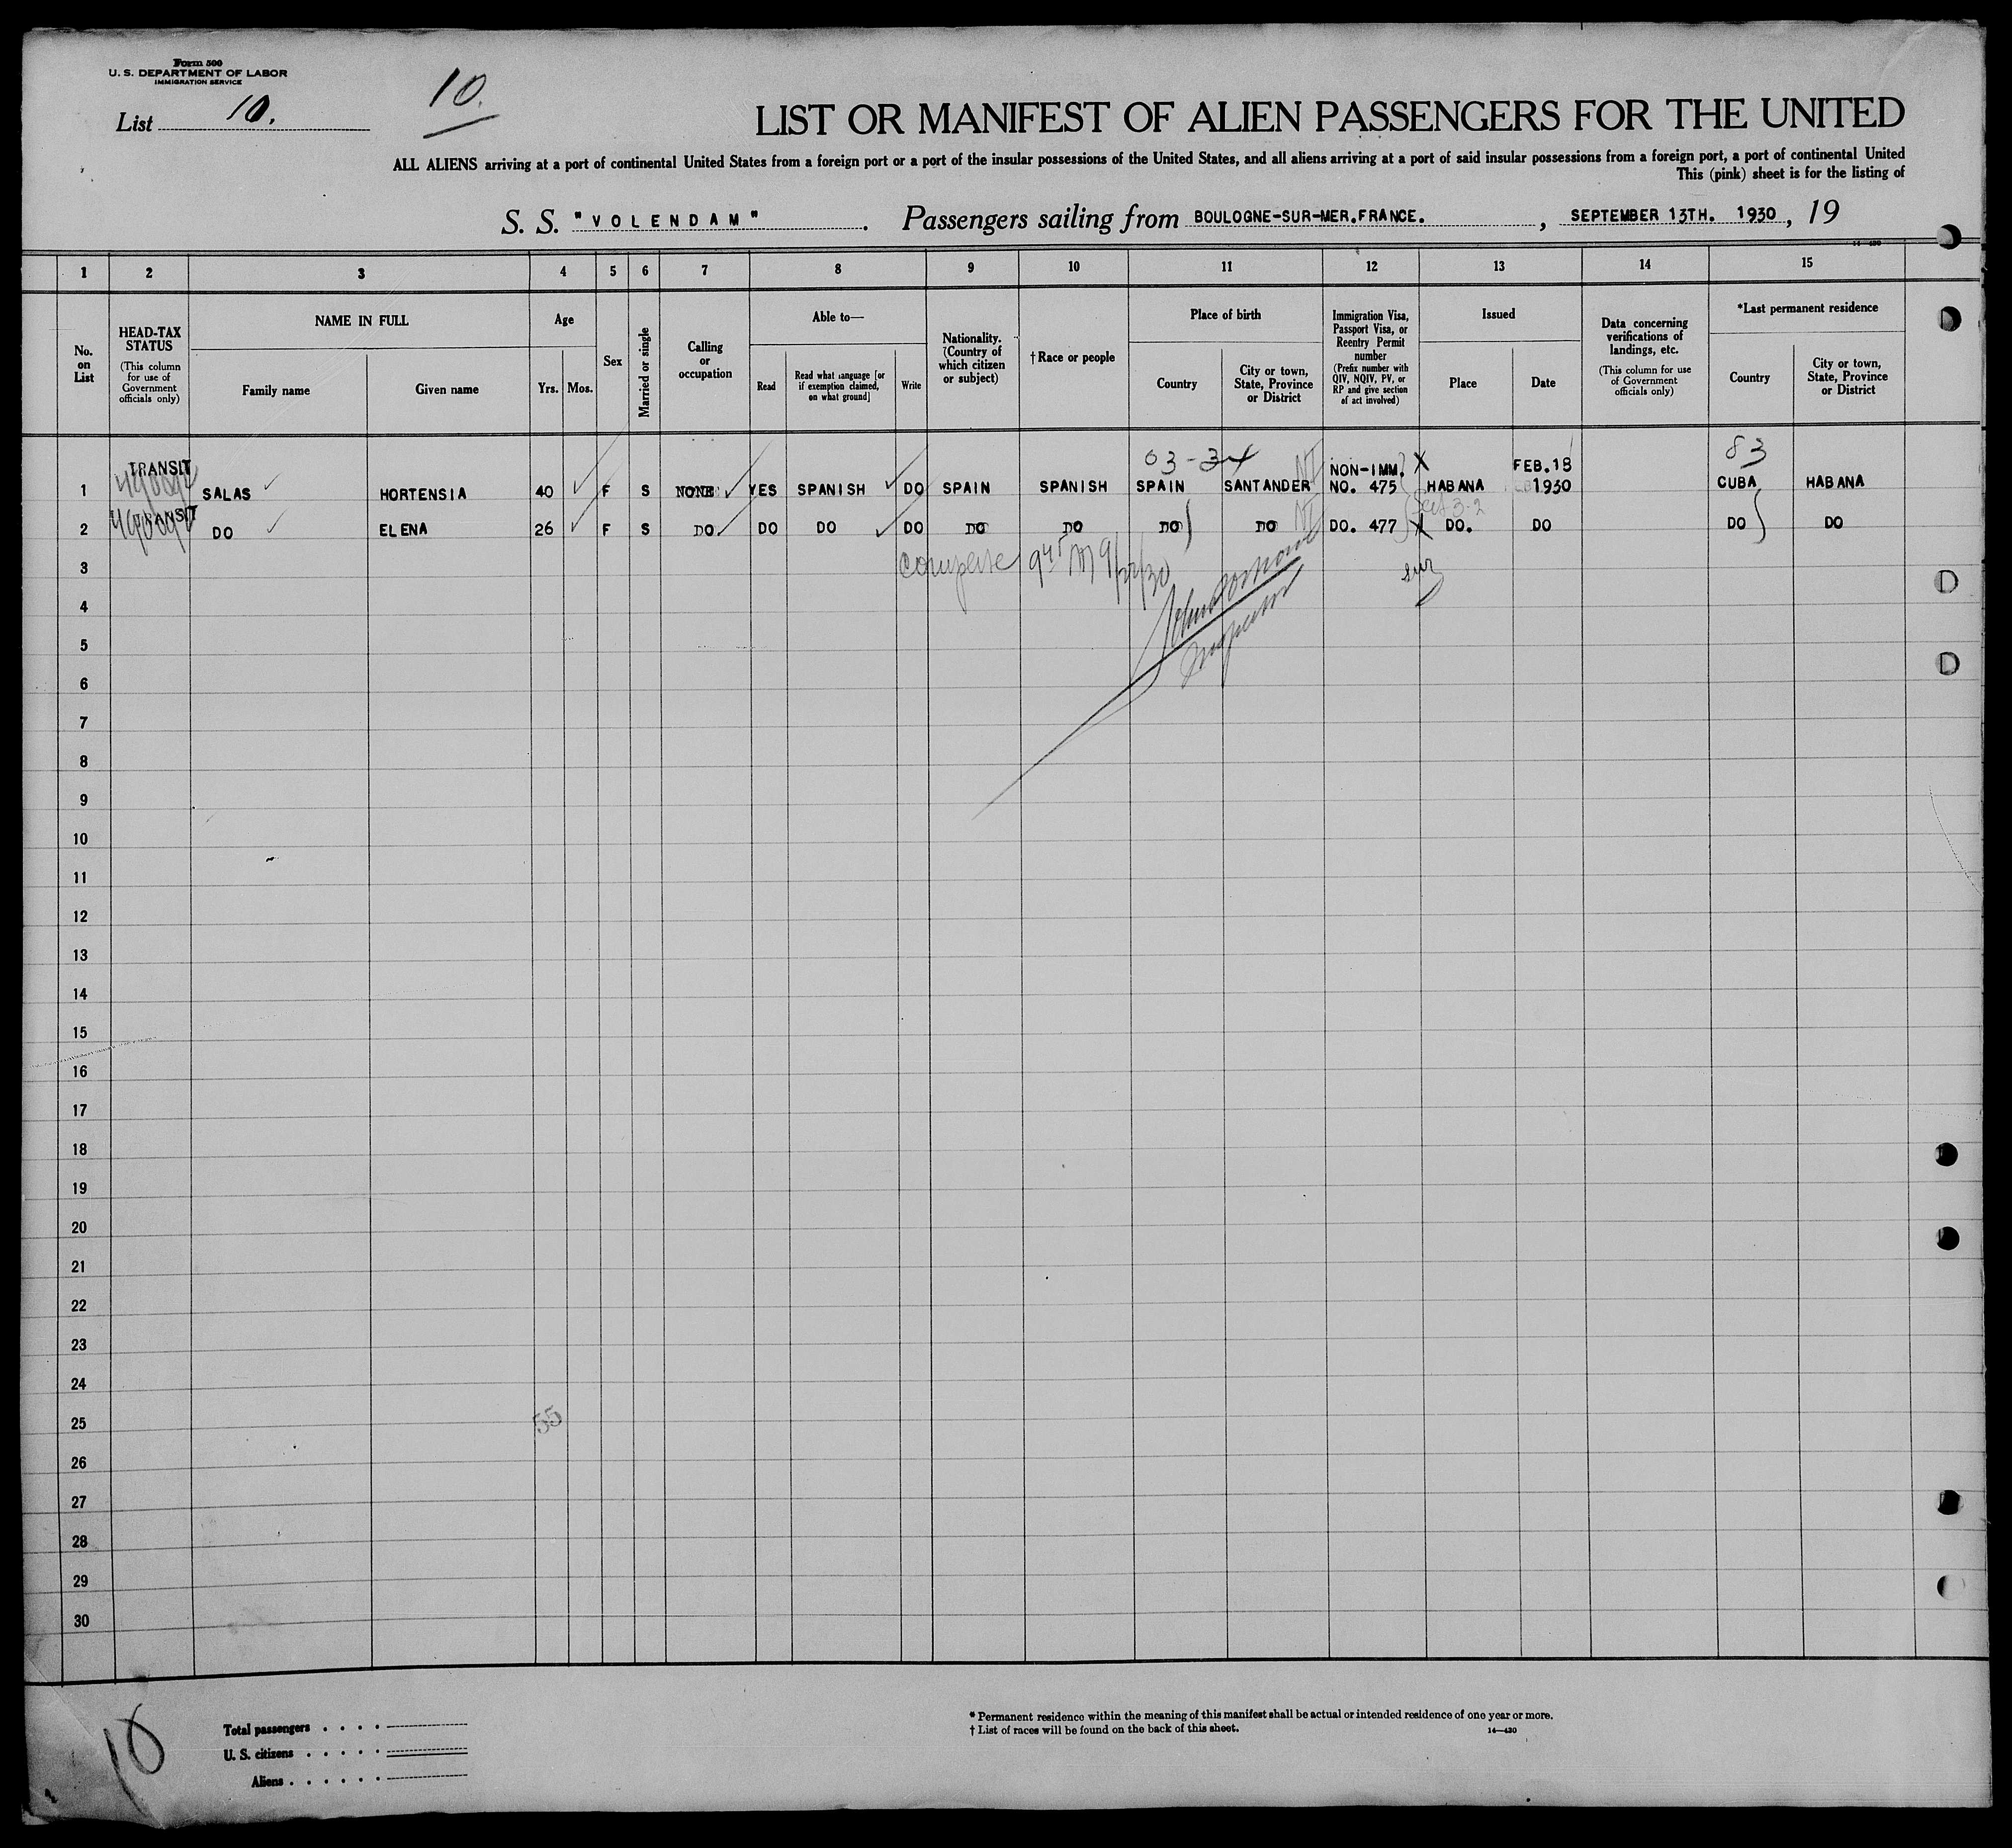 Form 500
U. S. DEPARTMENT OF LABOR
IMMIGRATION SERVICE
List 10.
10.
LIST OR MANIFEST OF ALIEN PASSENGERS FOR THE UNITED
ALL ALIENS arriving at a port of continental United States from a foreign port or a port of the insular possessions of the United States, and all aliens arriving at a port of said insular possessions from a foreign port, a port of continental United
This (pink) sheet is for the listing of
S. S. "VOLENDAM". Passengers sailing from BOULOGNE-SUR-MER.FRANCE., SEPTEMBER 13TH. 1930, 19
14—430
1 2 3 4 5 6 7 8 9 10 11 12 13 14 15
No. on List
HEAD-TAX STATUS
(This column for use of Government officials only)
NAME IN FULL
Family name
Given name
Age
Yrs. Mos.
Sex
Married or single
Calling or occupation
Able to—
Read
Read what language [or if exemption claimed, on what ground]
Write
Nationality. (Country of which citizen or subject)
† Race or people
Place of birth
Country
City or town, State, Province or District
Immigration Visa, Passport Visa, or Reentry Permit number
(Prefix number with QIV, NQIV, PV, or RP and give section of act involved)
Issued
Place
Date
Data concerning verifications of landings, etc.
(This column for use of Government officials only)
*Last permanent residence
Country
City or town, State, Province or District
03-34 83
TRANSIT NON-IMM. FEB.18
1 SALAS HORTENSIA 40 F S NONE YES SPANISH DO SPAIN SPANISH SPAIN SANTANDER NO. 475 HABANA 1930 CUBA HABANA
TRANSIT
2 DO ELENA 26 F S DO DO DO DO DO DO DO DO DO. 477 DO. DO DO DO
3
4
5
6
7
8
9
10
11
12
13
14
15
16
17
18
19
20
21
22
23
24
25 55
26
27
28
29
30
10
Total passengers
U. S. citizens
Aliens
* Permanent residence within the meaning of this manifest shall be actual or intended residence of one year or more.
† List of races will be found on the back of this sheet. 14—430